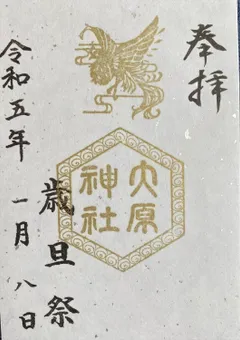 奉拝
大原
神社
歳旦祭
令和五年 一月 八日